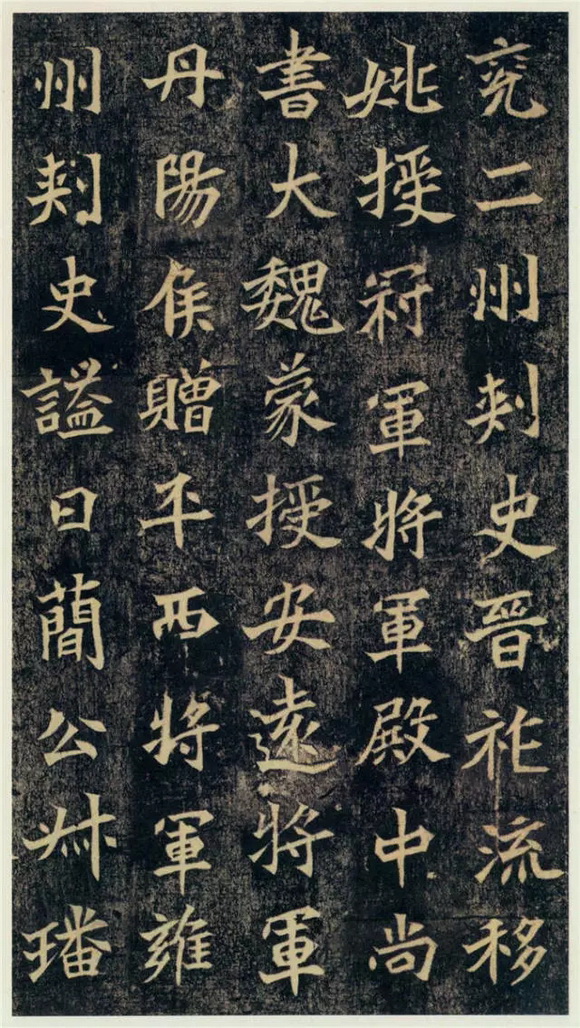 兗二州刺史晉祚流移
姚授冠軍將軍殿中尚
書大魏蒙授安遠將軍
丹陽侯贈平西將軍雍
州刺史謚曰簡公叔璠